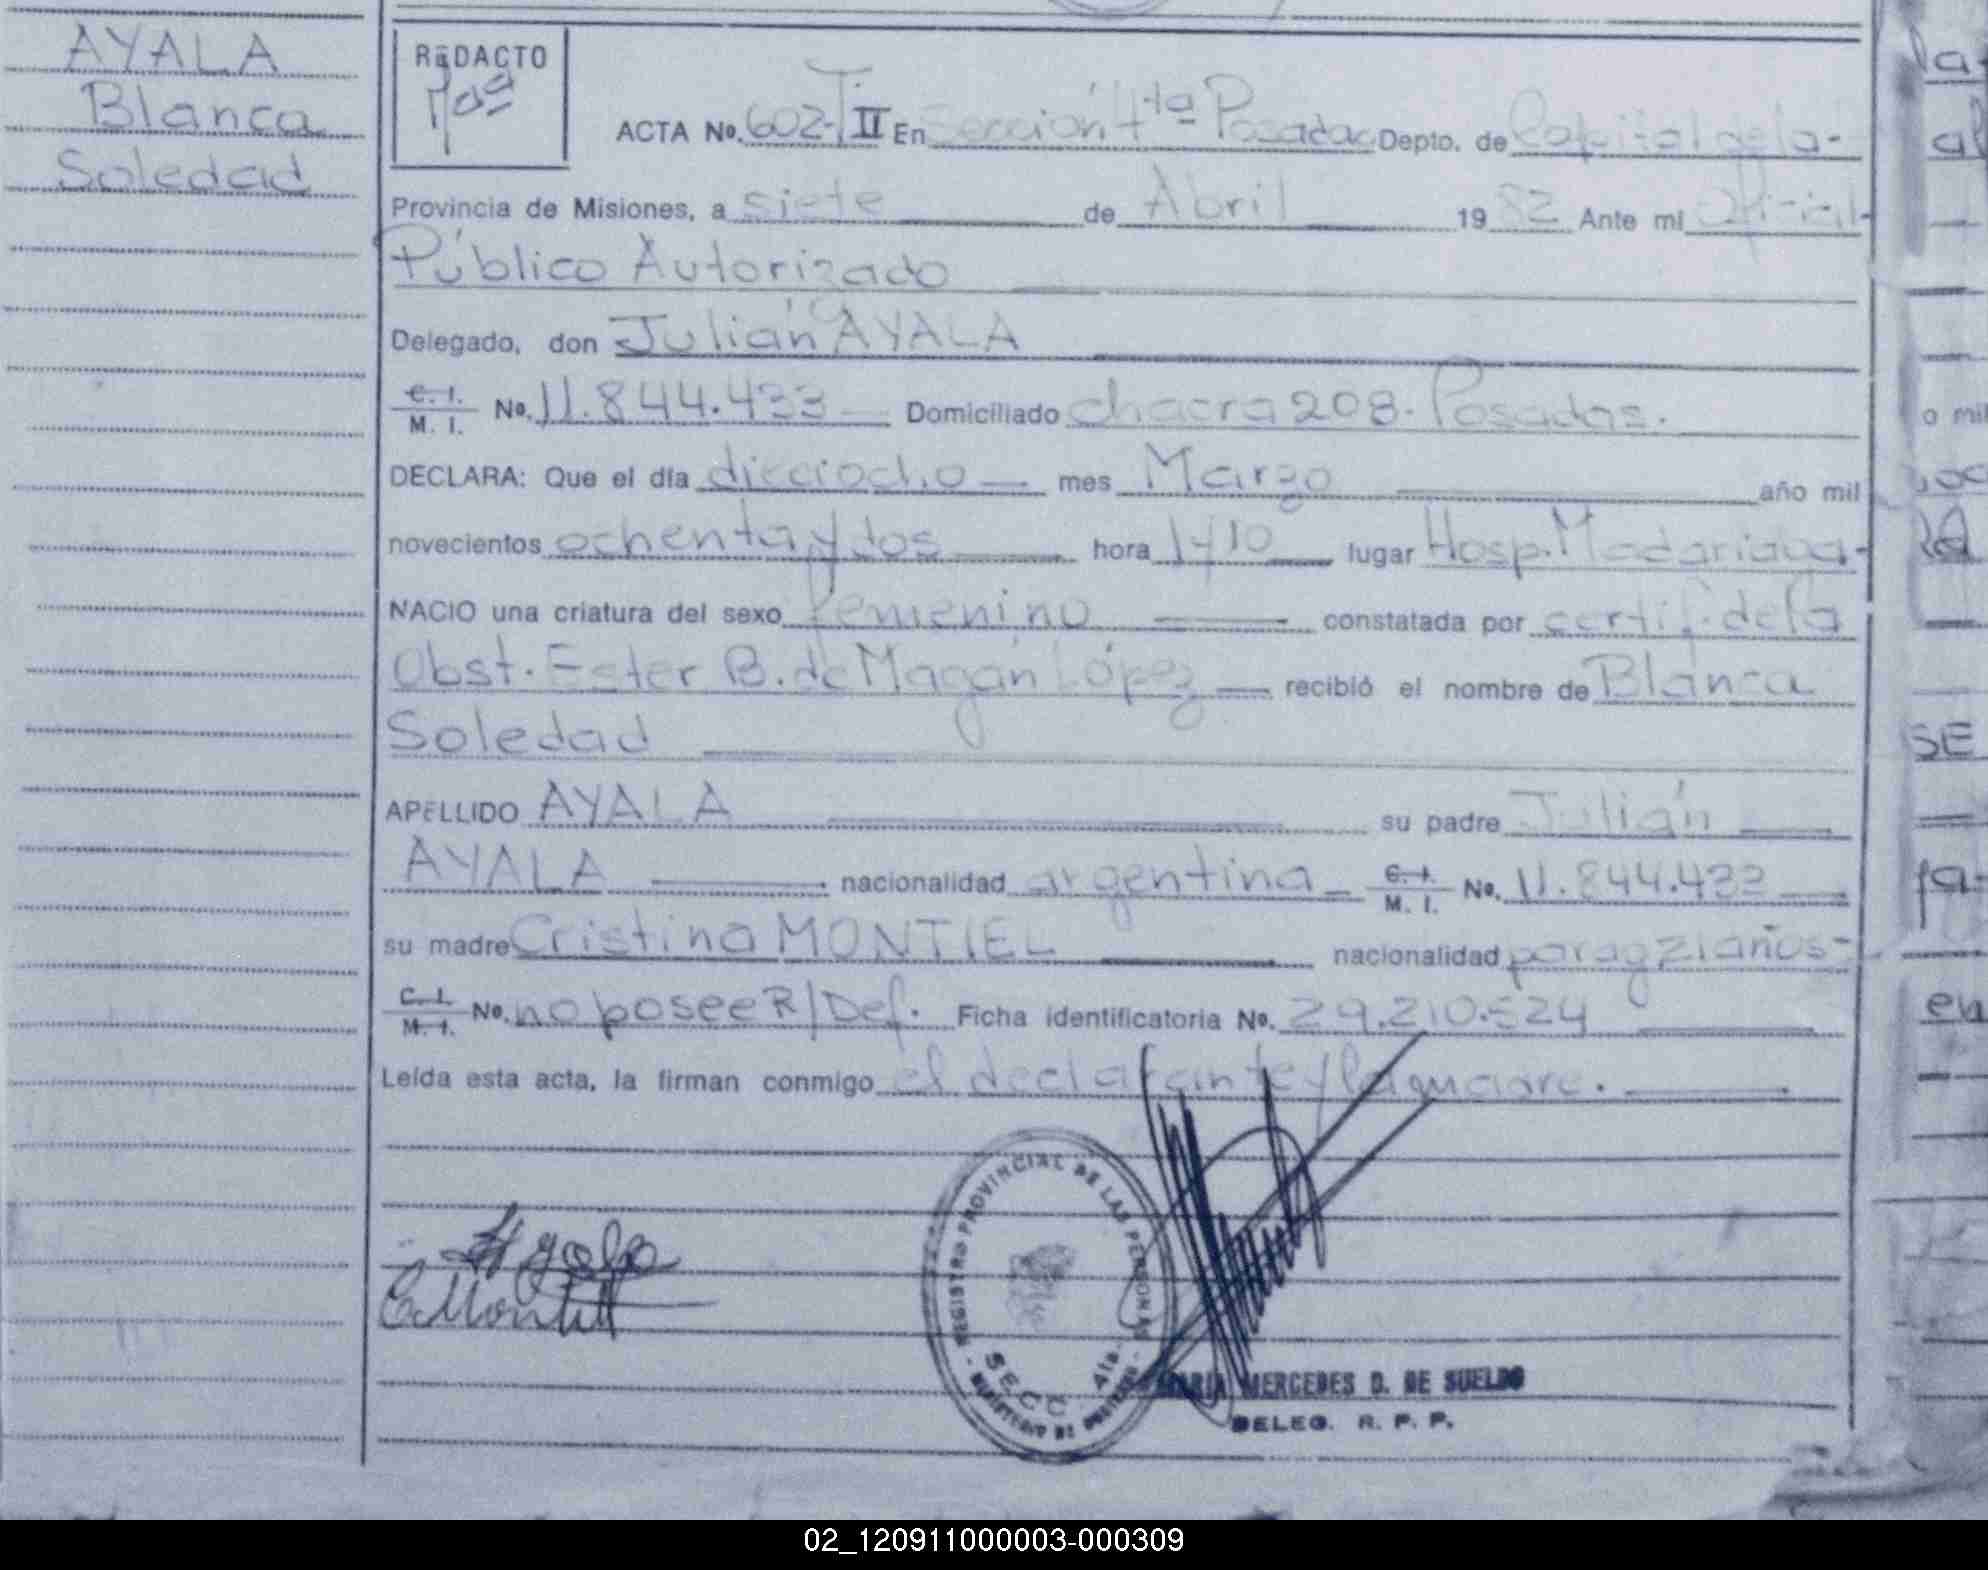 AYALA
Blanca
Soledad
REDACTO
ACTA No. 602-T II En Sección 4ta Posadas Depto. de Capital de la-
Provincia de Misiones, a siete de Abril 1982 Ante mi Oficial-
Público Autorizado
Delegado, don Julián AYALA
C. I.
M. I. No. 11.844.433 Domiciliado chacra 208. Posadas.
DECLARA: Que el día dieciocho mes Marzo año mil
novecientos ochenta y dos hora 1410 lugar Hosp. Madariaga-
NACIO una criatura del sexo femenino constatada por certif. de la
Obst. Ester B. de Magán López recibió el nombre de Blanca
Soledad
APELLIDO AYALA su padre Julián
AYALA nacionalidad argentina C. I.
M. I. No. 11.844.433
su madre Cristina MONTIEL nacionalidad
C. I.
M. I. No. no posee R/Def. Ficha identificatoria No. 29.210.524
Leída esta acta, la firman conmigo el declarante y la madre.
Ayala
C. Montiel
REGISTRO PROVINCIAL DE LAS PERSONAS
SECC. 4ta.
MARIA MERCEDES D. DE SUELDO
DELEG. R. P. P.
02_120911000003-000309